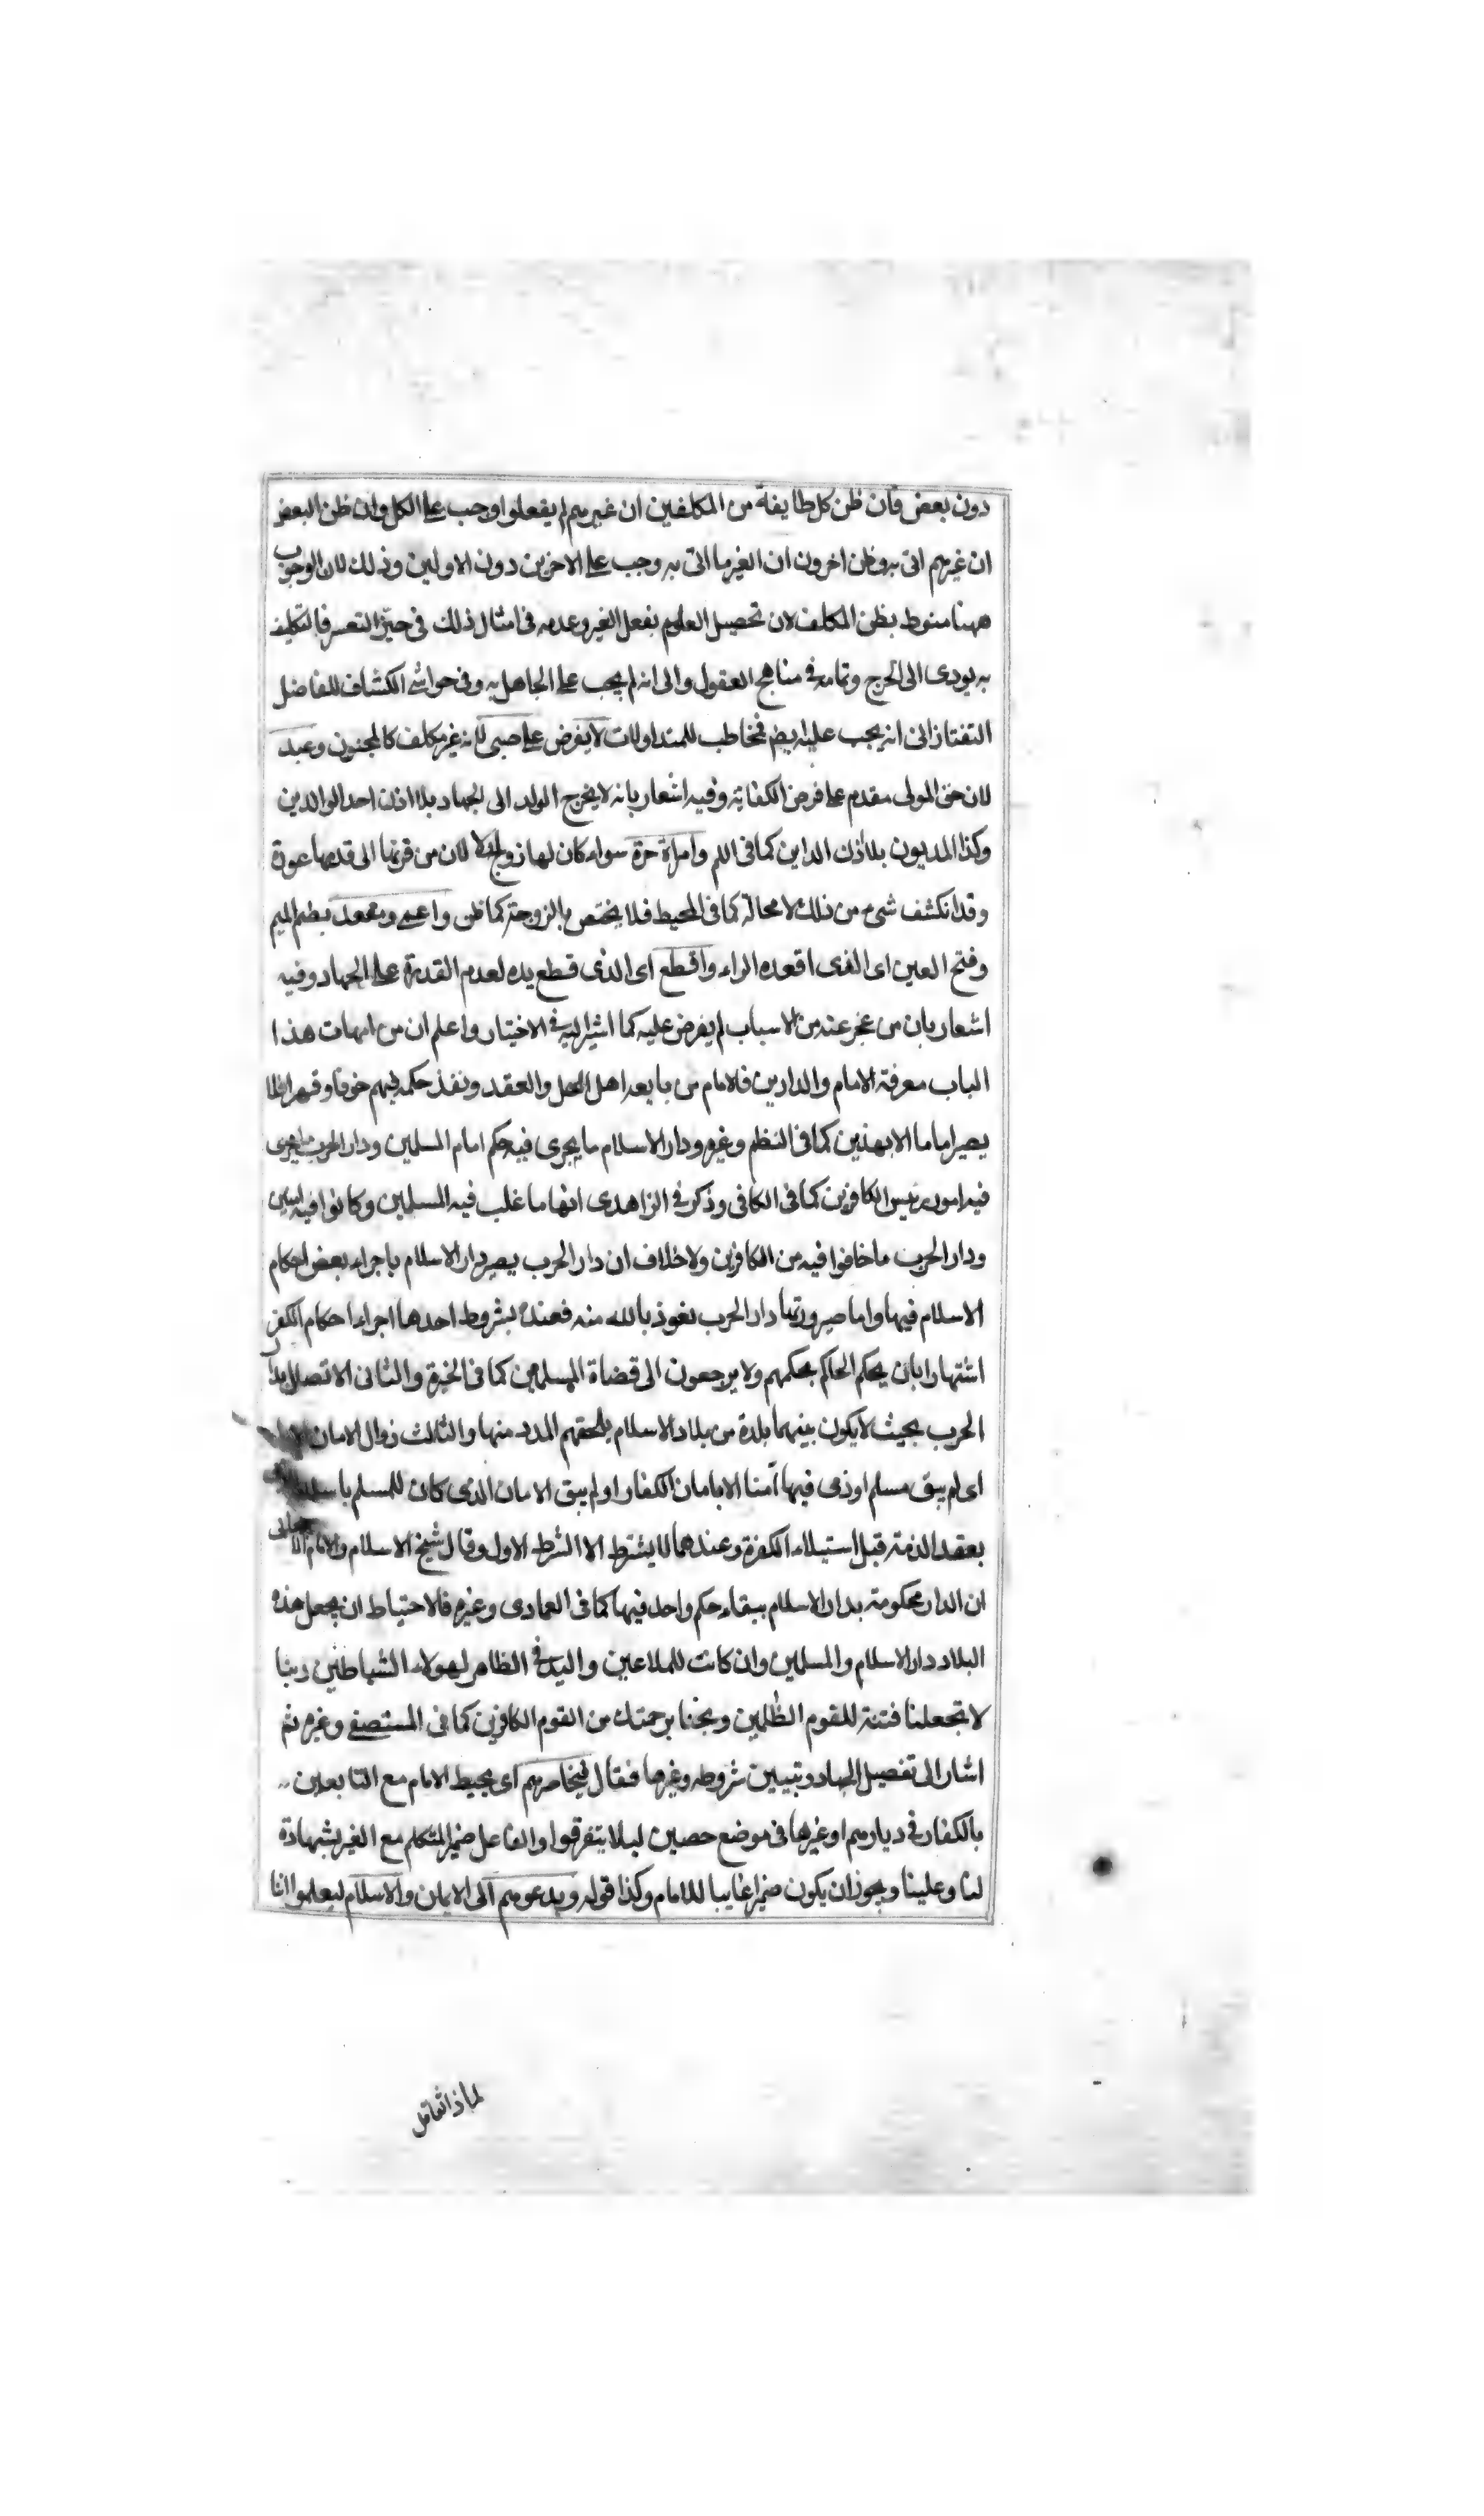 دون بعض فان ظن كل طايفة من المكلفين ان غيرهم لم يفعلوا وجب على الكل وان ظن البعض
ان غيرهم اتى به وظن اخرون ان الغير ما اتى به وجب على الاخرين دون الاولين وذلك لان الوجوب
ههنا منوط بظن المكلف لان تحصيل العلم بفعل الغير وعدمه فى امثال ذلك فى حيّز التعسر فالتكليف
به يودى الى الحرج وتمامه فى مناهج العقول والى انه لم يجب على الجاهل به وفى حواشى الكشاف للفاضل
التفتازانى انه يجب عليه ايضا لا يفرض على صبى لانه غير مكلف كالمجنون وعبد
لان حق المولى مقدم على فرض الكفاية وفيه اشعار بانه لا يخرج الولد الى الجهاد بلا اذن احد الوالدين
وكذا المديون بلا اذن الداين كما فى وامراة حرة سواء كان لها زوج لان من قرنها الى قدمها عورة
وقد انكشف شئ من ذلك لا محالة كما فى المحيط فلا يختص بالزوجة كما ظن واعمى ومقعد بضم الميم
وفتح العين اى الذى اقعده الداء واقطع اى الذى قطع يده لعدم القدرة على الجهاد وفيه
اشعار بان من عجز عنه من الاسباب لم يفرض عليه كما اشير اليه فى الاختيار واعلم ان من امهات هذا
الباب معرفة الامام والدارين فالامام من بايعه اهل الحل والعقد ونفذ حكمه فيهم خوفا وقهرا لما
يصير اماما الا بهذين كما فى النظم وغيره ودار الاسلام ما يجرى فيه حكم امام المسلمين ودار الحرب ما يجرى
فيه امور رئيس الكافرين كما فى الكافى وذكر فى الزاهدى انها ما غلب فيه المسلمين وكانوا فيه امنين
ودار الحرب ما خافوا فيه من الكافرين ولا خلاف ان دار الحرب يصير دار الاسلام باجراء بعض احكام
الاسلام فيها واما صيرورتها دار الحرب نعوذ بالله منه فعنده بشروط احدها اجراء احكام الكفر
اشتهارا بان يحكم الحاكم بحكمهم ولا يرجعون الى قضاة المسلمين كما فى الخيرة والثانى الاتصال بدار
الحرب بحيث لا يكون بينهما بلدة من بلاد الاسلام يلحقهم المدد منها والثالث زوال الامان
اى لم يبق مسلم او ذمى فيها آمنا الا بامان الكفار او لم يبق الامان الذى كان للمسلم باسلامه
بعقد الذمة قبل استيلاء الكفرة وعندهما لا يشترط الا الشرط الاول وقال شيخ الاسلام والامام
ان الدار محكومة بدار الاسلام ببقاء حكم واحد فيها كما فى العمادى وغيره فالاحتياط ان يجعل هذه
البلاد دار الاسلام والمسلمين وان كانت للملاعين واليد فى الظاهر لهولاء الشياطين ربنا
لا تجعلنا فتنة للقوم الظلمين ونجنا برحمتك من القوم الكافرين كما فى المستصفى وغيره ثم
اشار الى تفصيل الجهاد وتبيين شروطه وغيرها فقال فيحاصرهم اى يحيط الامام مع التابعين
بالكفار فى ديارهم او غيرها فى موضع حصين ليلا يتفرقوا والفاعل ضمير المتكلم مع الغير بشهادة
لنا وعلينا ويجوز ان يكون ضميرا غايبا للامام وكذا قوله ويدعوهم الى الايمان والاسلام ليعلموا انا